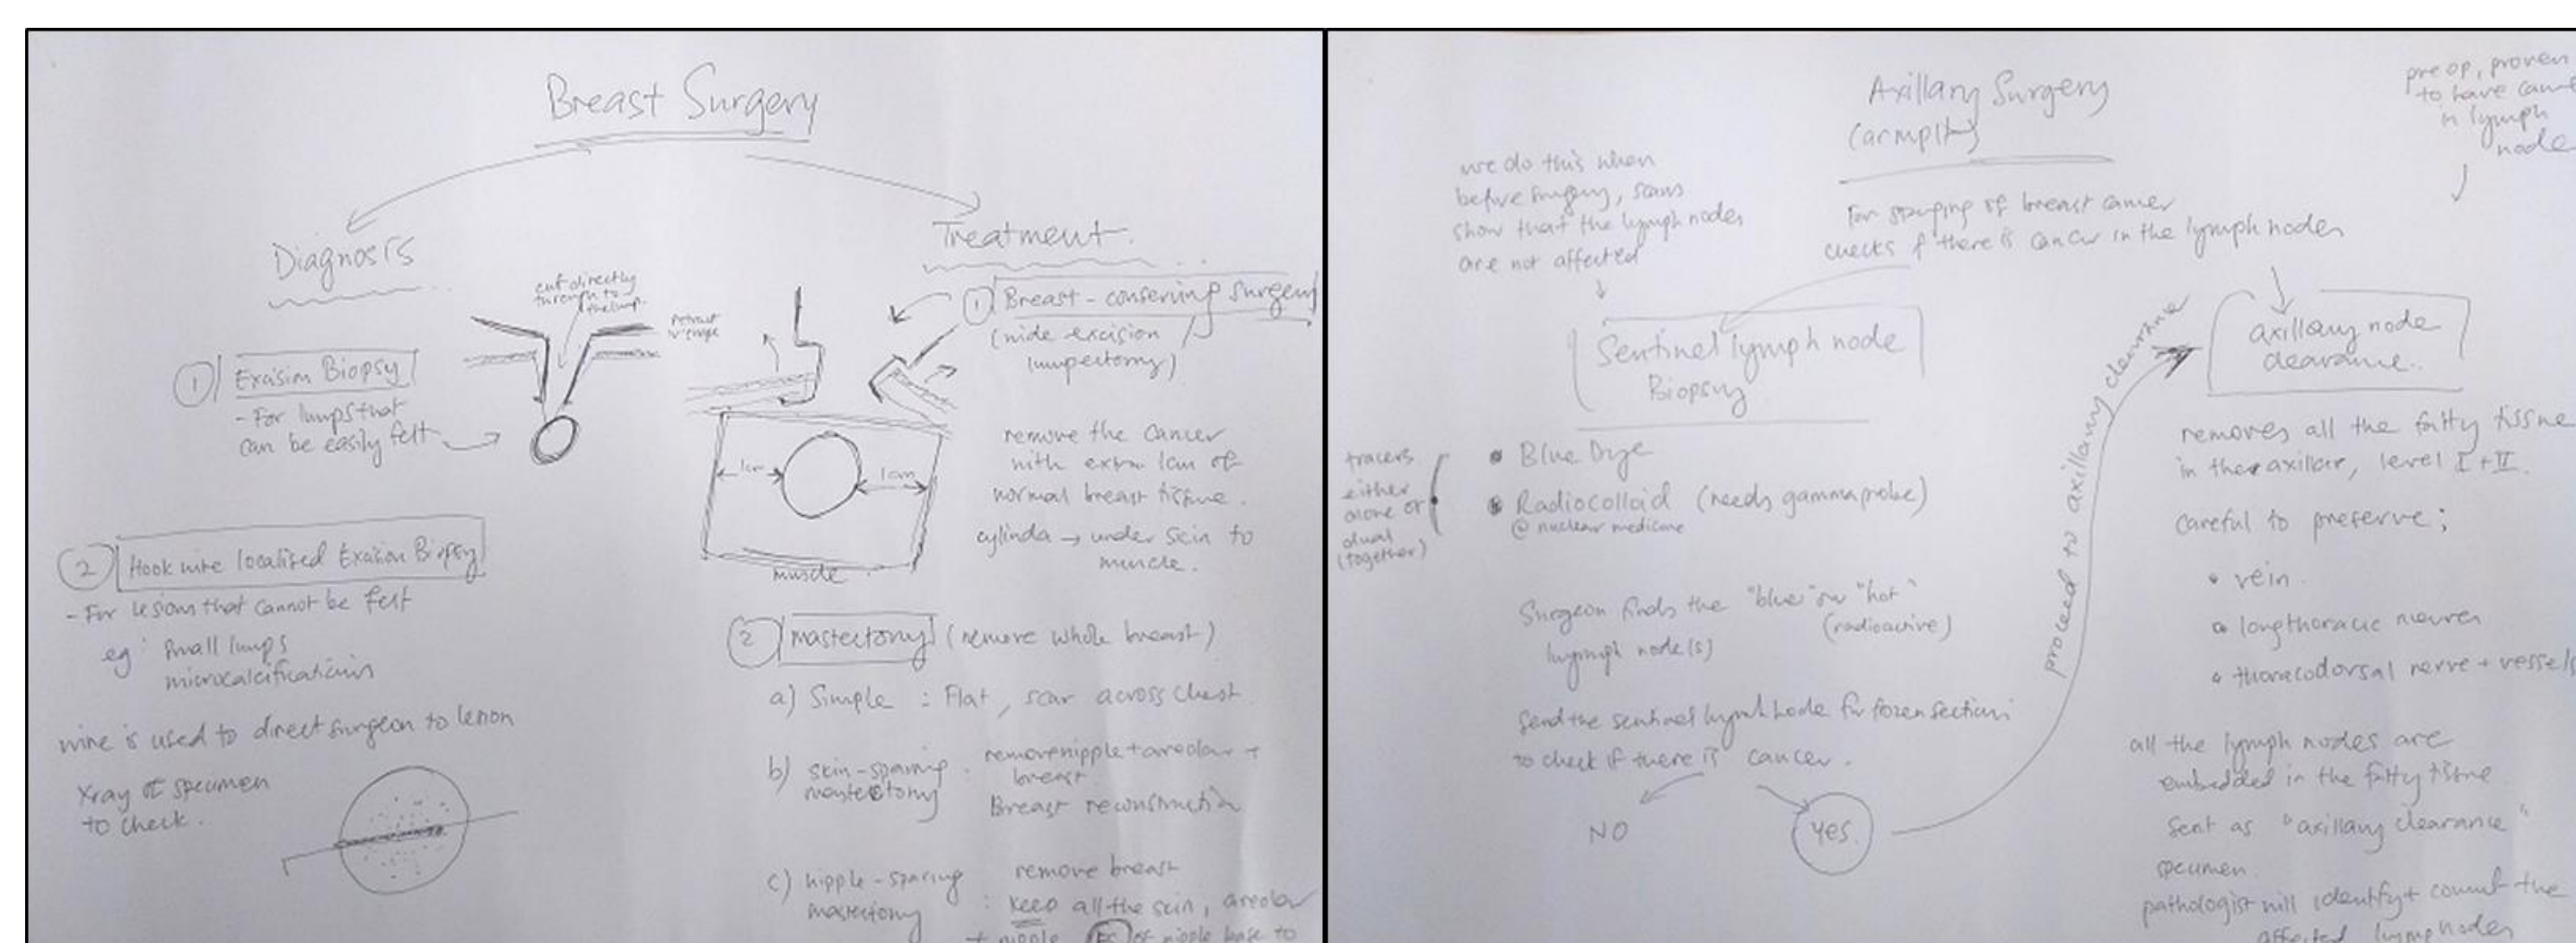 Breast Surgery
Diagnosis
cut directly
through to
the lump.
1 Excision Biopsy
- For lumps that
can be easily felt
2 Hook wire localised Excision Biopsy
- For lesions that cannot be felt
eg: small lumps
microcalcifications
wire is used to direct surgeon to lesion
Xray of specimen
to check.
Treatment.
1 Breast-conserving surgery
(wide excision /
lumpectomy)
1cm
1cm
muscle
remove the cancer
with extra 1cm of
normal breast tissue.
cylinda → under skin to
muscle.
2 mastectomy (remove whole breast)
a) Simple : Flat, scar across chest
b) skin-sparing : remove nipple + areolar +
mastectomy breast
Breast reconstruction
c) nipple-sparing remove breast
mastectomy : keep all the skin, areolar
+ nipple FS of nipple base to
Axillary Surgery
(armpit)
For staging of breast cancer
checks if there is cancer in the lymph nodes
we do this when
before surgery, scans
show that the lymph nodes
are not affected
Sentinel lymph node
Biopsy
tracers
either
alone or
dual
(together)
Blue Dye
Radiocolloid (needs gammaprobe)
@ nuclear medicine
Surgeon finds the "blue" or "hot"
(radioactive)
lymph node(s)
Send the sentinel lymph node for frozen section
to check if there is cancer.
NO
Yes
proceed to axillary clearance
pre op, proven
to have
in lymph
node
axillary node
clearance.
removes all the fatty tissue
in the axillar, level I + II.
careful to preserve;
vein
long thoracic nerve
thoracodorsal nerve + vessels
all the lymph nodes are
embedded in the fatty tissue
Sent as "axillary clearance"
specimen
pathologist will identify + count the
affected lymph nodes